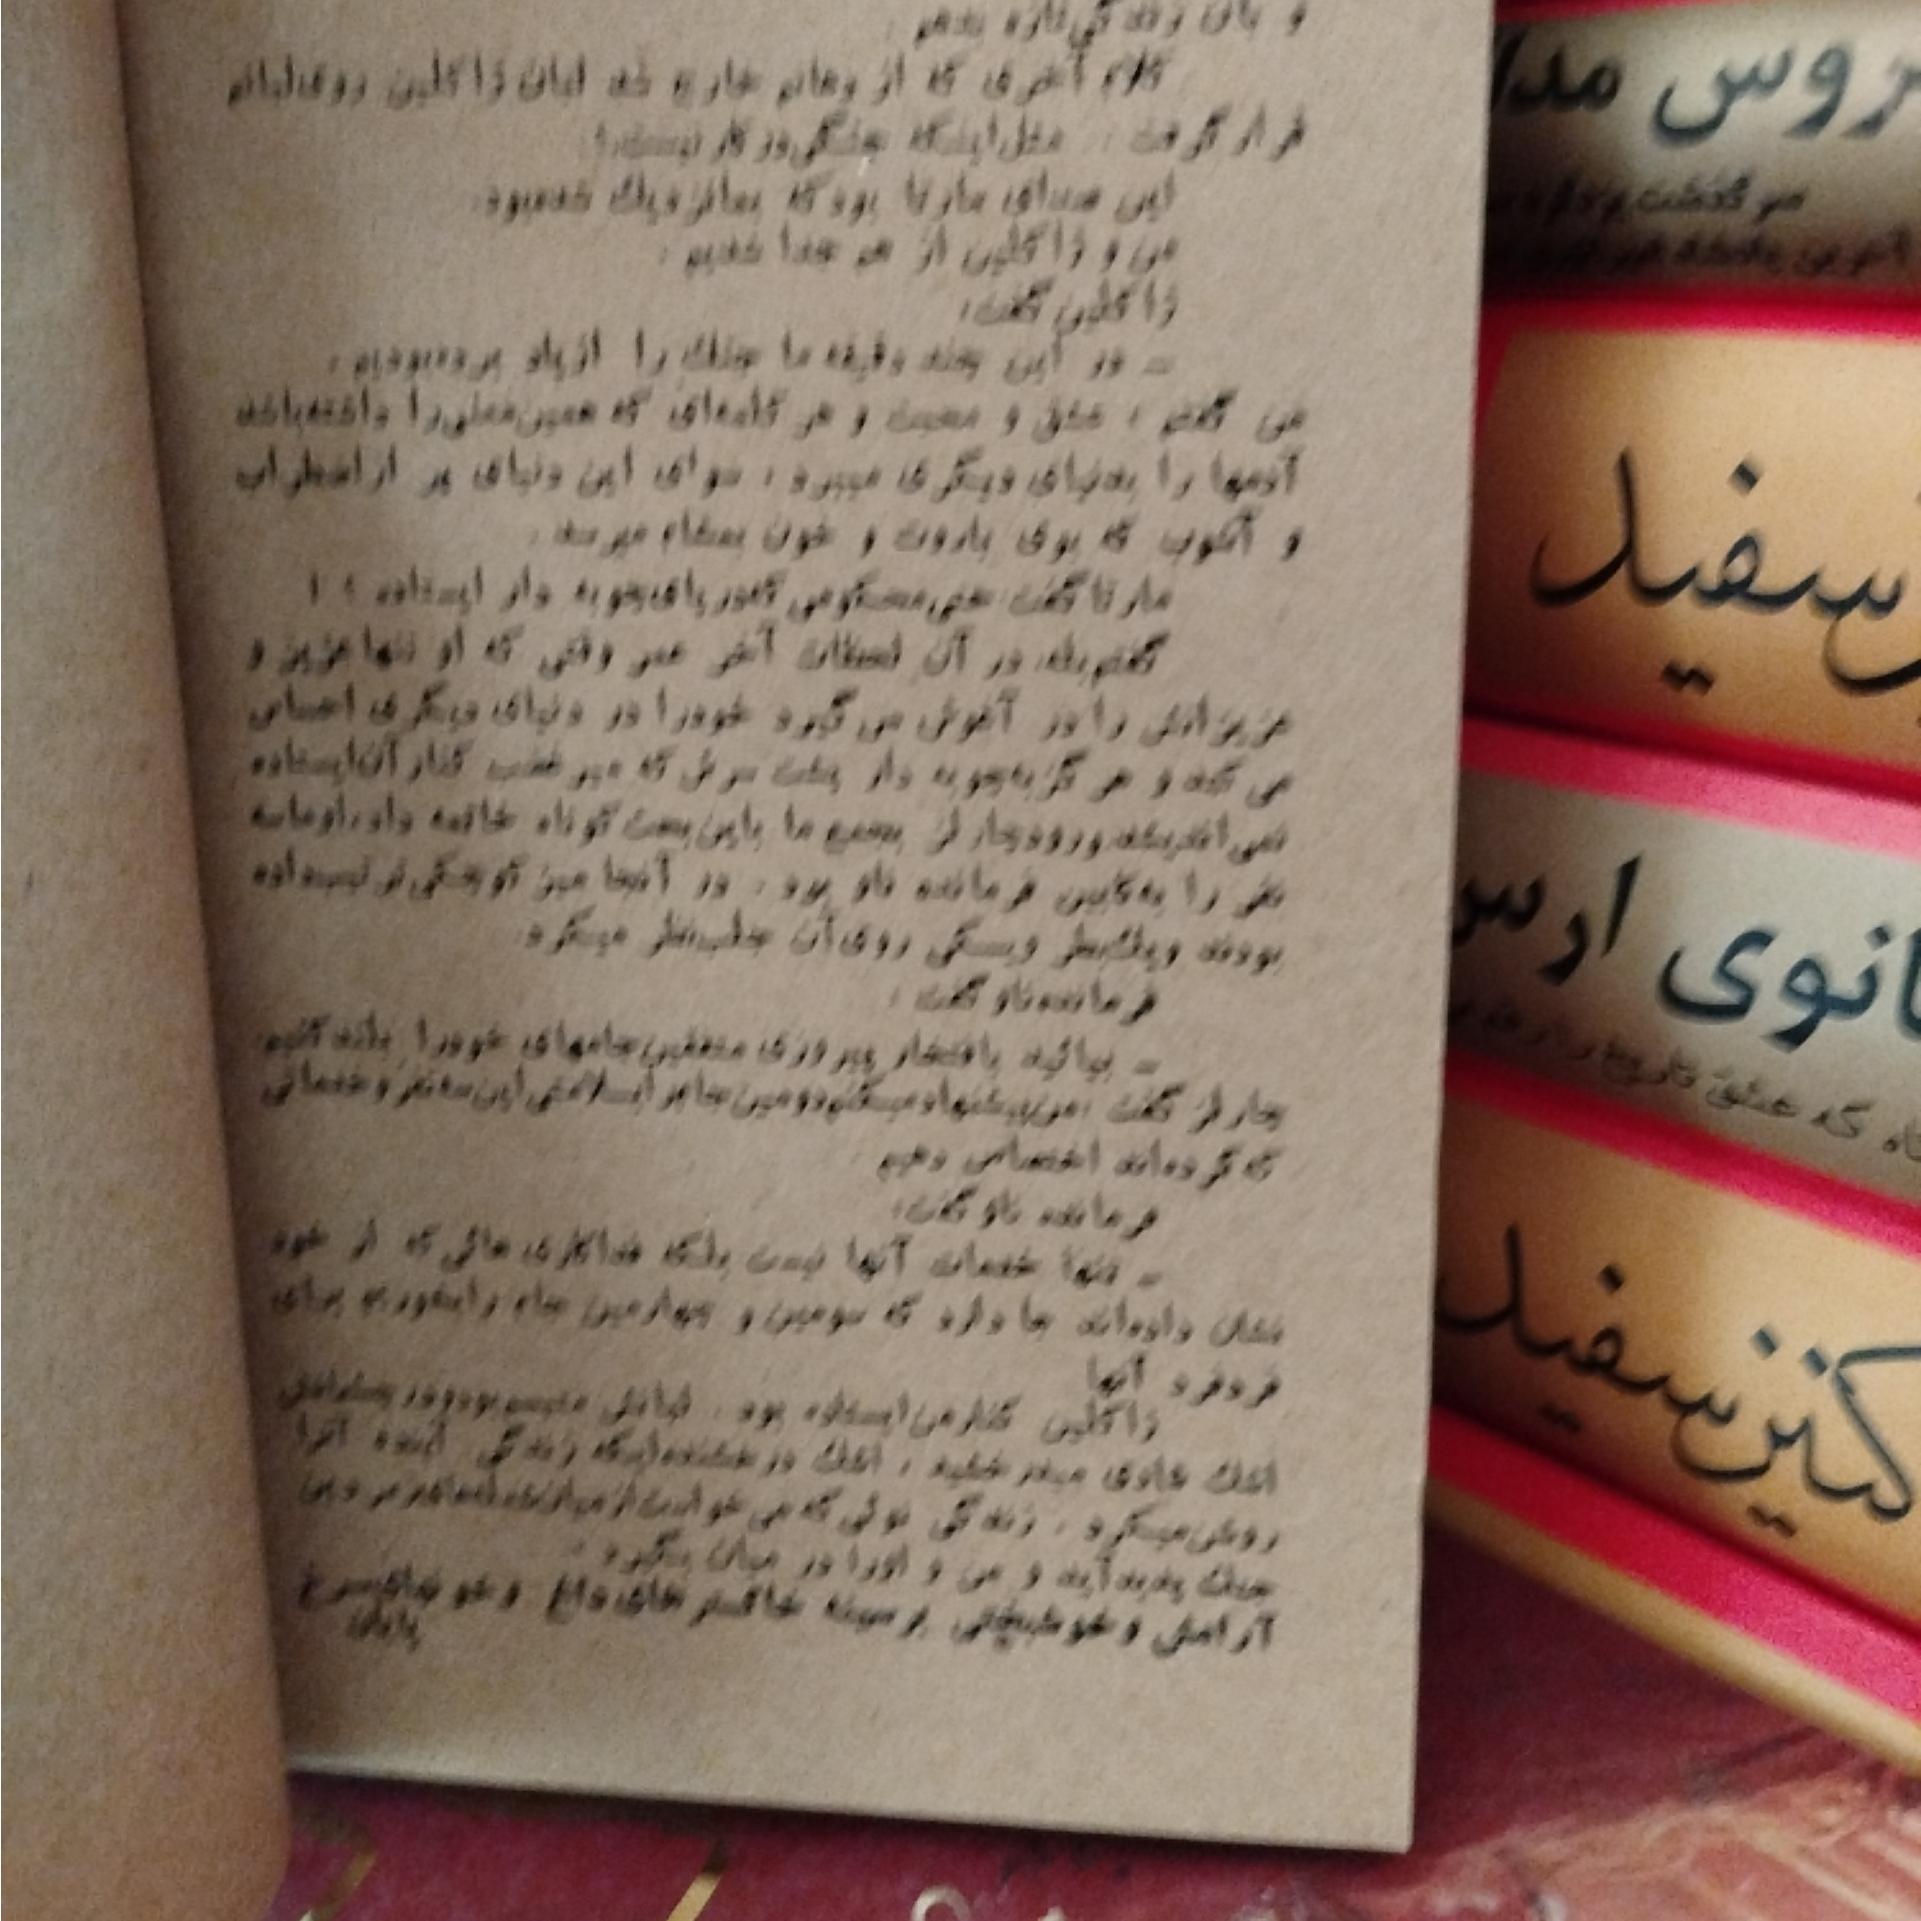 و بآن زندگی تازه بدهم .
کلام آخری که از دهانم خارج شد لبان ژاکلین روی لبانم
قرار گرفت . مثل اینکه جنگی در کار نیست !
این صدای مارتا بود که بما نزدیک شده بود.
من و ژاکلین از هم جدا شدیم .
ژاکلین گفت:
ـ در این چند دقیقه ما جنگ را از یاد برده بودیم .
من گفتم ، عشق و محبت و هر کلمه‌ای که همین معنی را داشته باشد
آدمها را بدنیای دیگری میبرد ، سوای این دنیای پر از اضطراب
و آشوب که بوی باروت و خون بمشام میرسد .
مارتا گفت حتی محکومی که در پای چوبه دار ایستاده ؟ !
گفتم بله، در آن لحظات آخر عمر وقتی که او تنها عزیز و
عزیزانش را در آغوش می گیرد خود را در دنیای دیگری احساس
می کند و هرگز به چوبه دار پشت سرش که میر غضب کنار آن ایستاده
نمی اندیشد ورود چارلز بجمع ما باین بحث کوتاه خاتمه داد، او ما سه
نفر را به کابین فرمانده ناو برد . در آنجا میز کوچکی ترتیب داده
بودند و یک بطر ویسکی روی آن جلب نظر میکرد.
فرمانده ناو گفت :
ـ بیائید بافتخار پیروزی متفقین جامهای خود را بلند کنیم.
چارلز گفت ، من پیشنهاد میکنم دومین جام را بسلامتی این سه نفر و خدماتی
که کرده‌اند اختصاص دهیم .
فرمانده ناو گفت:
ـ تنها خدمات آنها نیست بلکه فداکاری هائی که از خود
نشان داده‌اند جا دارد که سومین و چهارمین جام را بخوریم برای
فرد فرد آنها
ژاکلین کنار من ایستاده بود . لبانش متبسم بود و در چشمانش
اشک شادی میدرخشید ، اشک درخشنده اینکه زندگی آینده آنرا
روشن میکرد . زندگی نوئی که می خواست از میان
جنگ پدید آید و من و او را در میان بگیرد .
آرامش و خوشبختی بر سینه خاکستر های داغ و خونهای سرخ
پایان
عروس مدا
سر گذشت یزدگرد س
آخرین پادشاه
ز سفید
بانوی ارس
که عشق تاریخ را
کنیز سفید